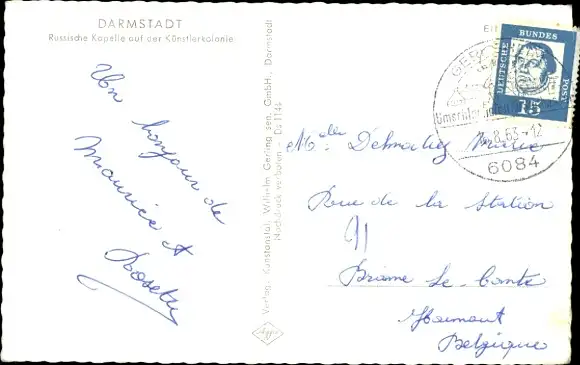 DARMSTADT
Russische Kapelle auf der Künstlerkolonie
Un bonjour de
Maurice et
Rosette
Verlag: Kunstanstalt Wilhelm Gerling sen. GmbH., Darmstadt
Nachdruck verboten Da 1146
Agfa
DEUTSCHE BUNDESPOST
15
8.63-12
6084
Rue de la Station
91
Braine Le Comte
Hainaut
Belgique